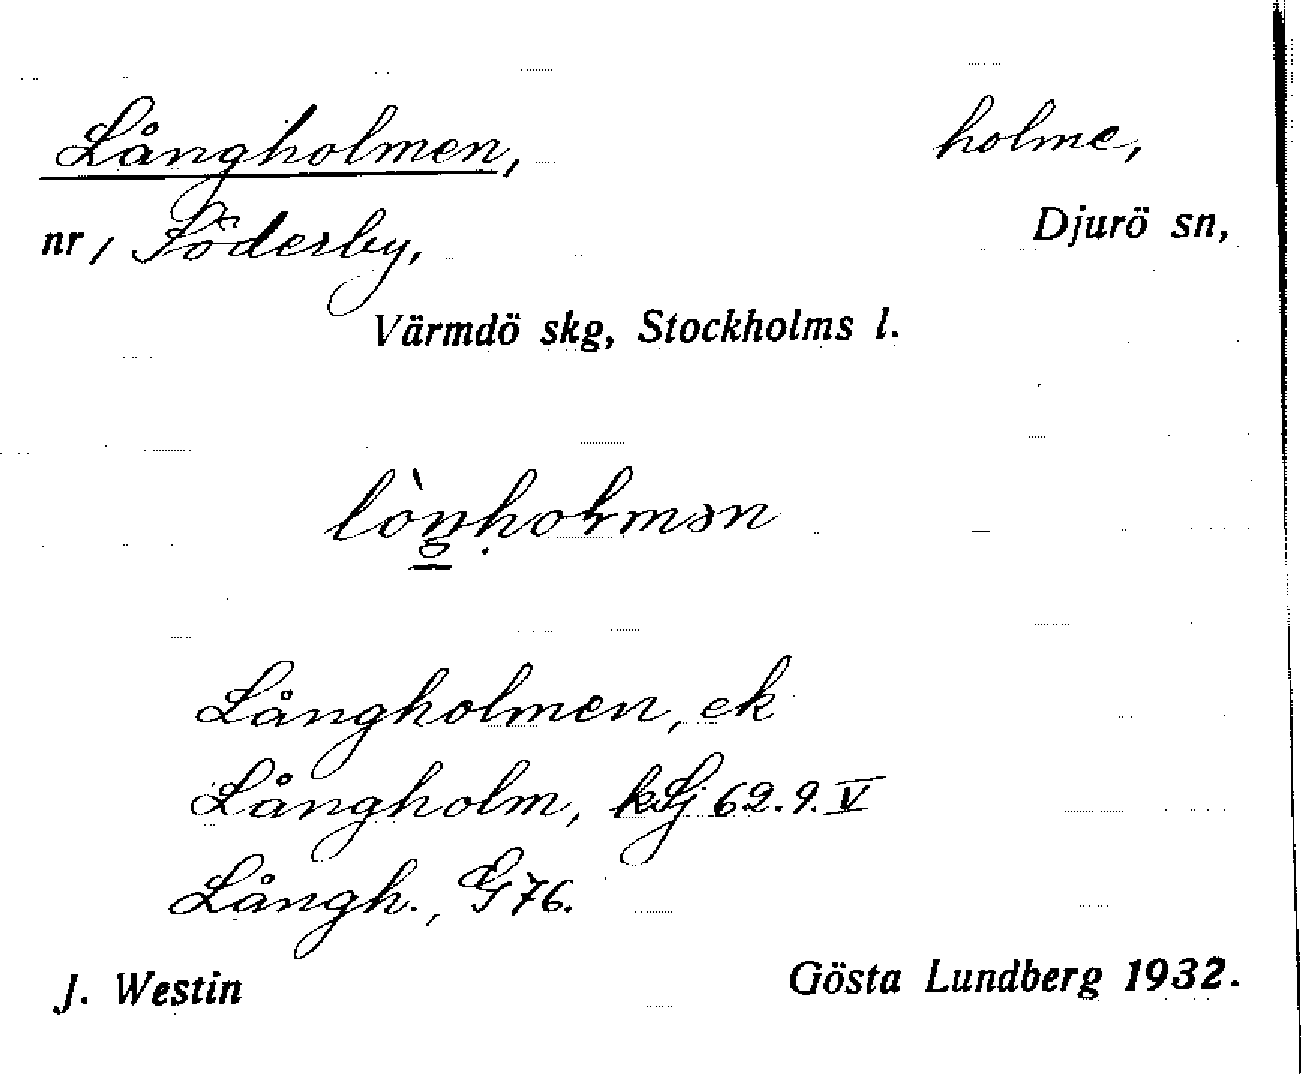 Långholmen, holme,
nr 1 Söderby, Djurö sn,
Värmdö skg, Stockholms l.
lòŋ̲ḥoɫmən
Långholmen, ek
Långholm, kLj 62.9.V
Långh., G76.
J. Westin Gösta Lundberg 1932.